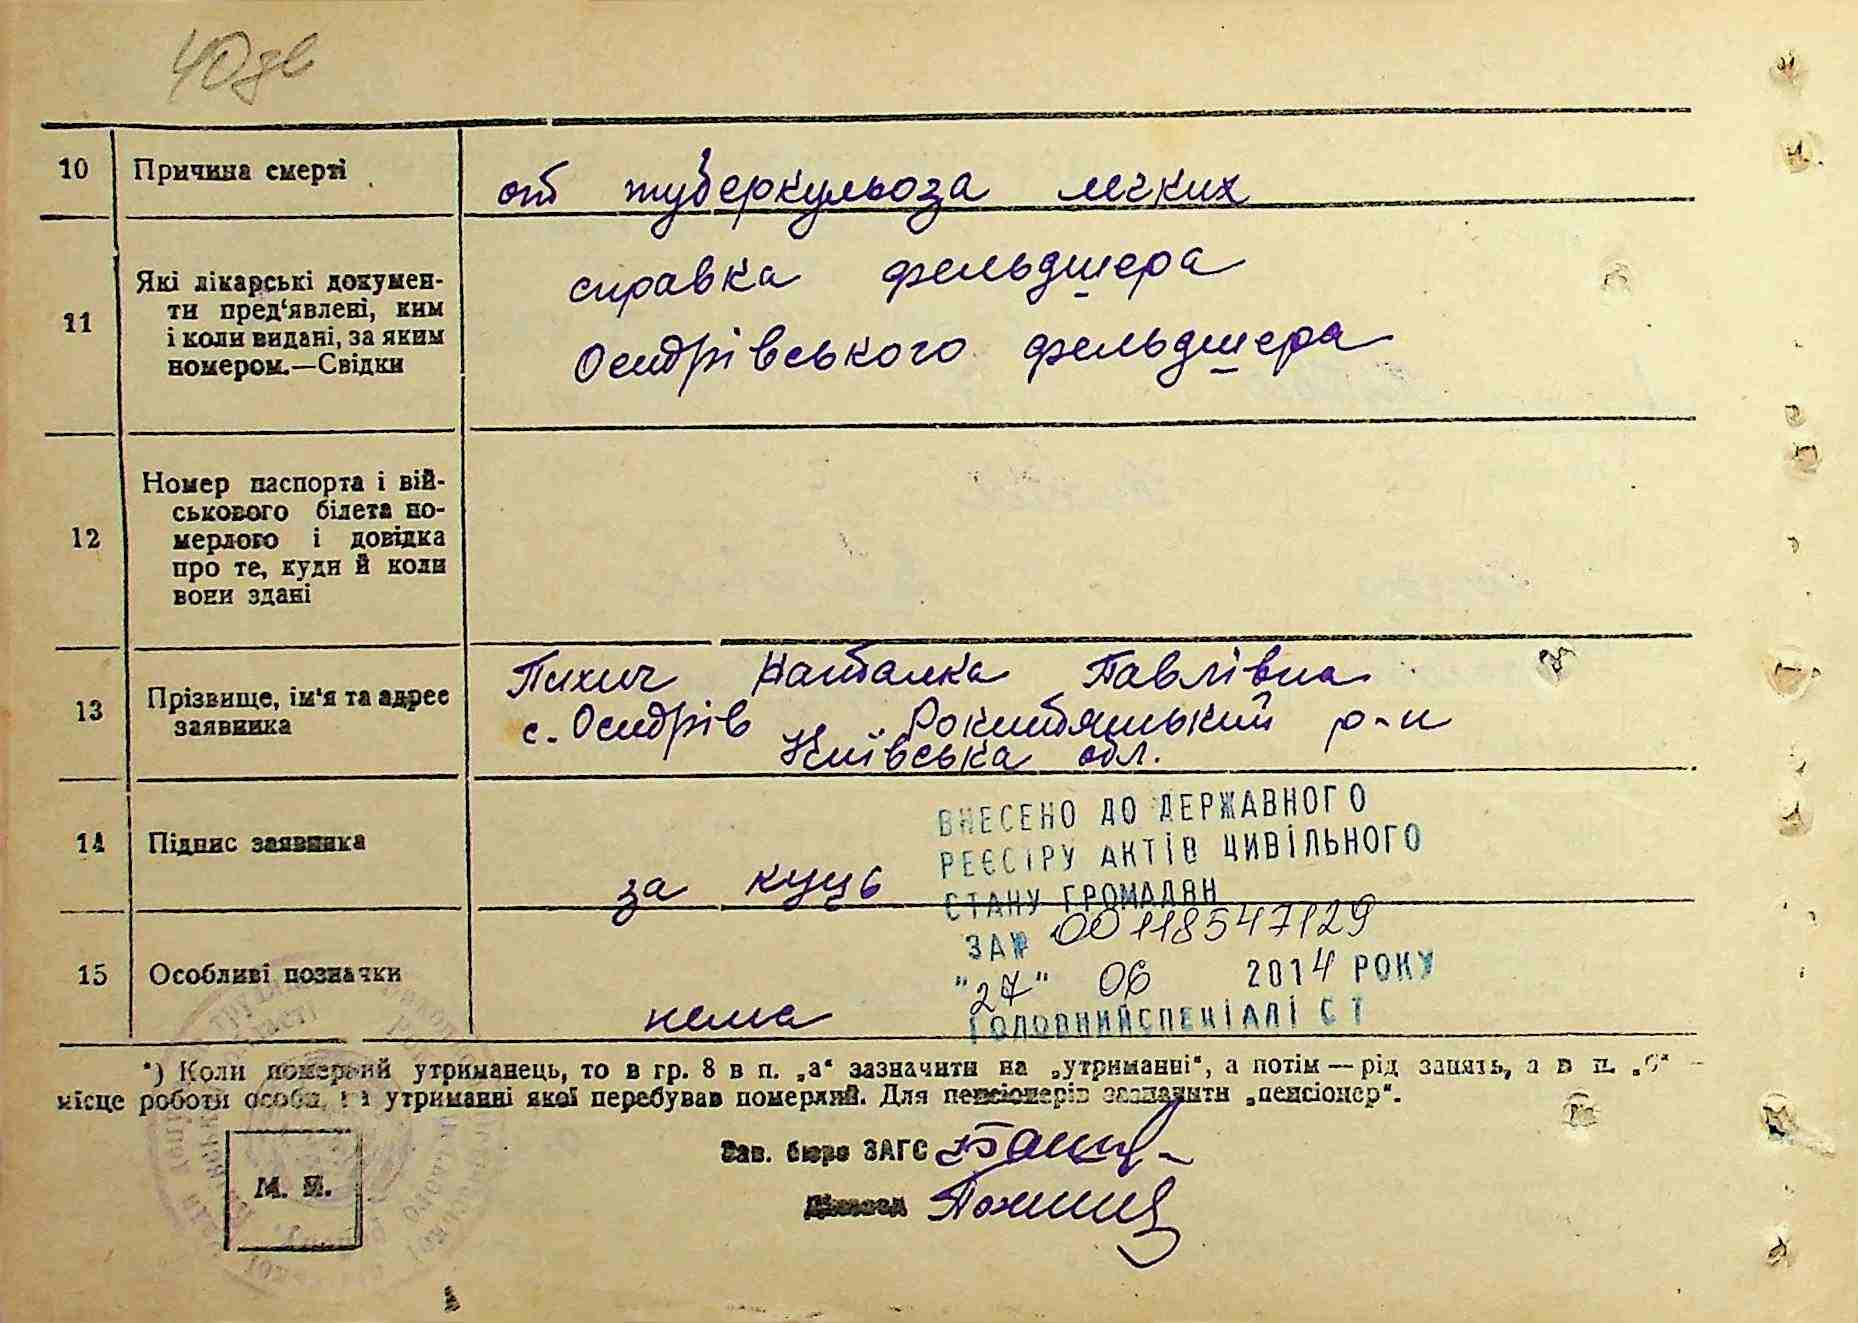 40 зв
10 Причина смерті
от туберкульоза легких
11 Які лікарські докумен-
ти пред'явлені, ким
і коли видані, за яким
номером.—Свідки
справка фельдшера
Осидрівського фельдшера
12 Номер паспорта і вій-
ськового білета по-
мерлого і довідка
про те, куди й коли
вони здані
13 Прізвище, ім'я та адрес
заявника
Пихич Наталка Павлівна
с. Осидрів Рокитянський р-н
Київська обл.
14 Підпис заявника
за куць
ВНЕСЕНО ДО ДЕРЖАВНОГО
РЕЄСТРУ АКТІВ ЦИВІЛЬНОГО
СТАНУ ГРОМАДЯН
ЗА № 00118547129
"27" 06 2014 РОКУ
ГОЛОВНИЙ СПЕЦІАЛІСТ
15 Особливі позначки
нема
*) Коли померлий утриманець, то в гр. 8 в п. „а“ зазначити на „утриманні“, а потім — рід занять, а в п. „б“ –
місце роботи особи, на утриманні якої перебував померлий. Для пенсіонерів зазначити „пенсіонер“.
Зав. бюро ЗАГС
Діловод
М. П.